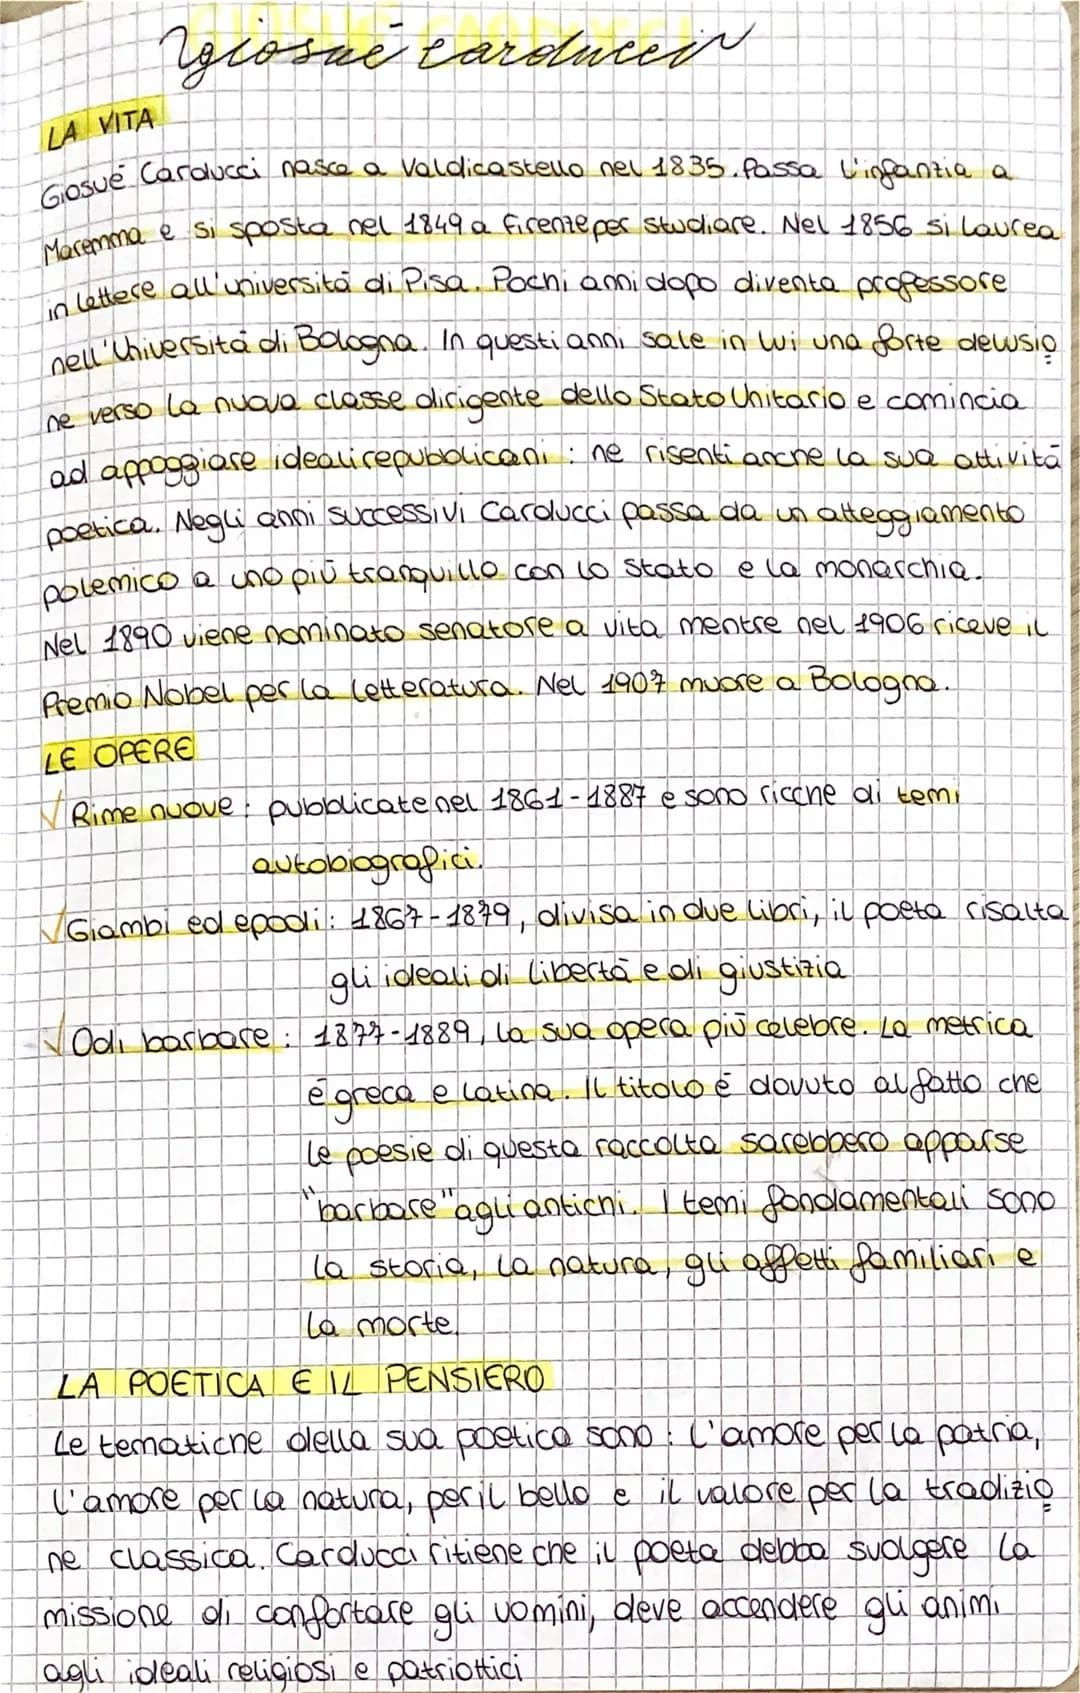 Giosué Carducci
LA VITA
Giosué Carducci nasce a Valdicastello nel 1835. Passa l'infanzia a
Maremma e si sposta nel 1849 a Firenze per studiare. Nel 1856 si laurea
in lettere all'università di Pisa. Pochi anni dopo diventa professore
nell'Università di Bologna. In questi anni sale in lui una forte delusio
ne verso la nuova classe dirigente dello Stato Unitario e comincia
ad appoggiare ideali repubblicani : ne risenti anche la sua attività
poetica. Negli anni successivi Carducci passa da un atteggiamento
polemico a uno più tranquillo con lo Stato e la monarchia.
Nel 1890 viene nominato senatore a vita mentre nel 1906 riceve il
Premio Nobel per la letteratura. Nel 1907 muore a Bologna.
LE OPERE
√ Rime nuove : pubblicate nel 1861-1887 e sono ricche di temi
autobiografici.
√ Giambi ed epodi : 1867-1879, divisa in due libri, il poeta risalta
gli ideali di libertà e di giustizia
√ Odi barbare : 1877-1889, la sua opera più celebre. La metrica
é greca e latina. Il titolo é dovuto al fatto che
le poesie di questa raccolta sarebbero apparse
"barbare" agli antichi. I temi fondamentali sono
la storia, la natura, gli affetti familiari e
la morte.
LA POETICA E IL PENSIERO
Le tematiche della sua poetica sono : L'amore per la patria,
l'amore per la natura, per il bello e il valore per la tradizio
ne classica. Carducci ritiene che il poeta debba svolgere la
missione di confortare gli uomini, deve accendere gli animi
agli ideali religiosi e patriottici